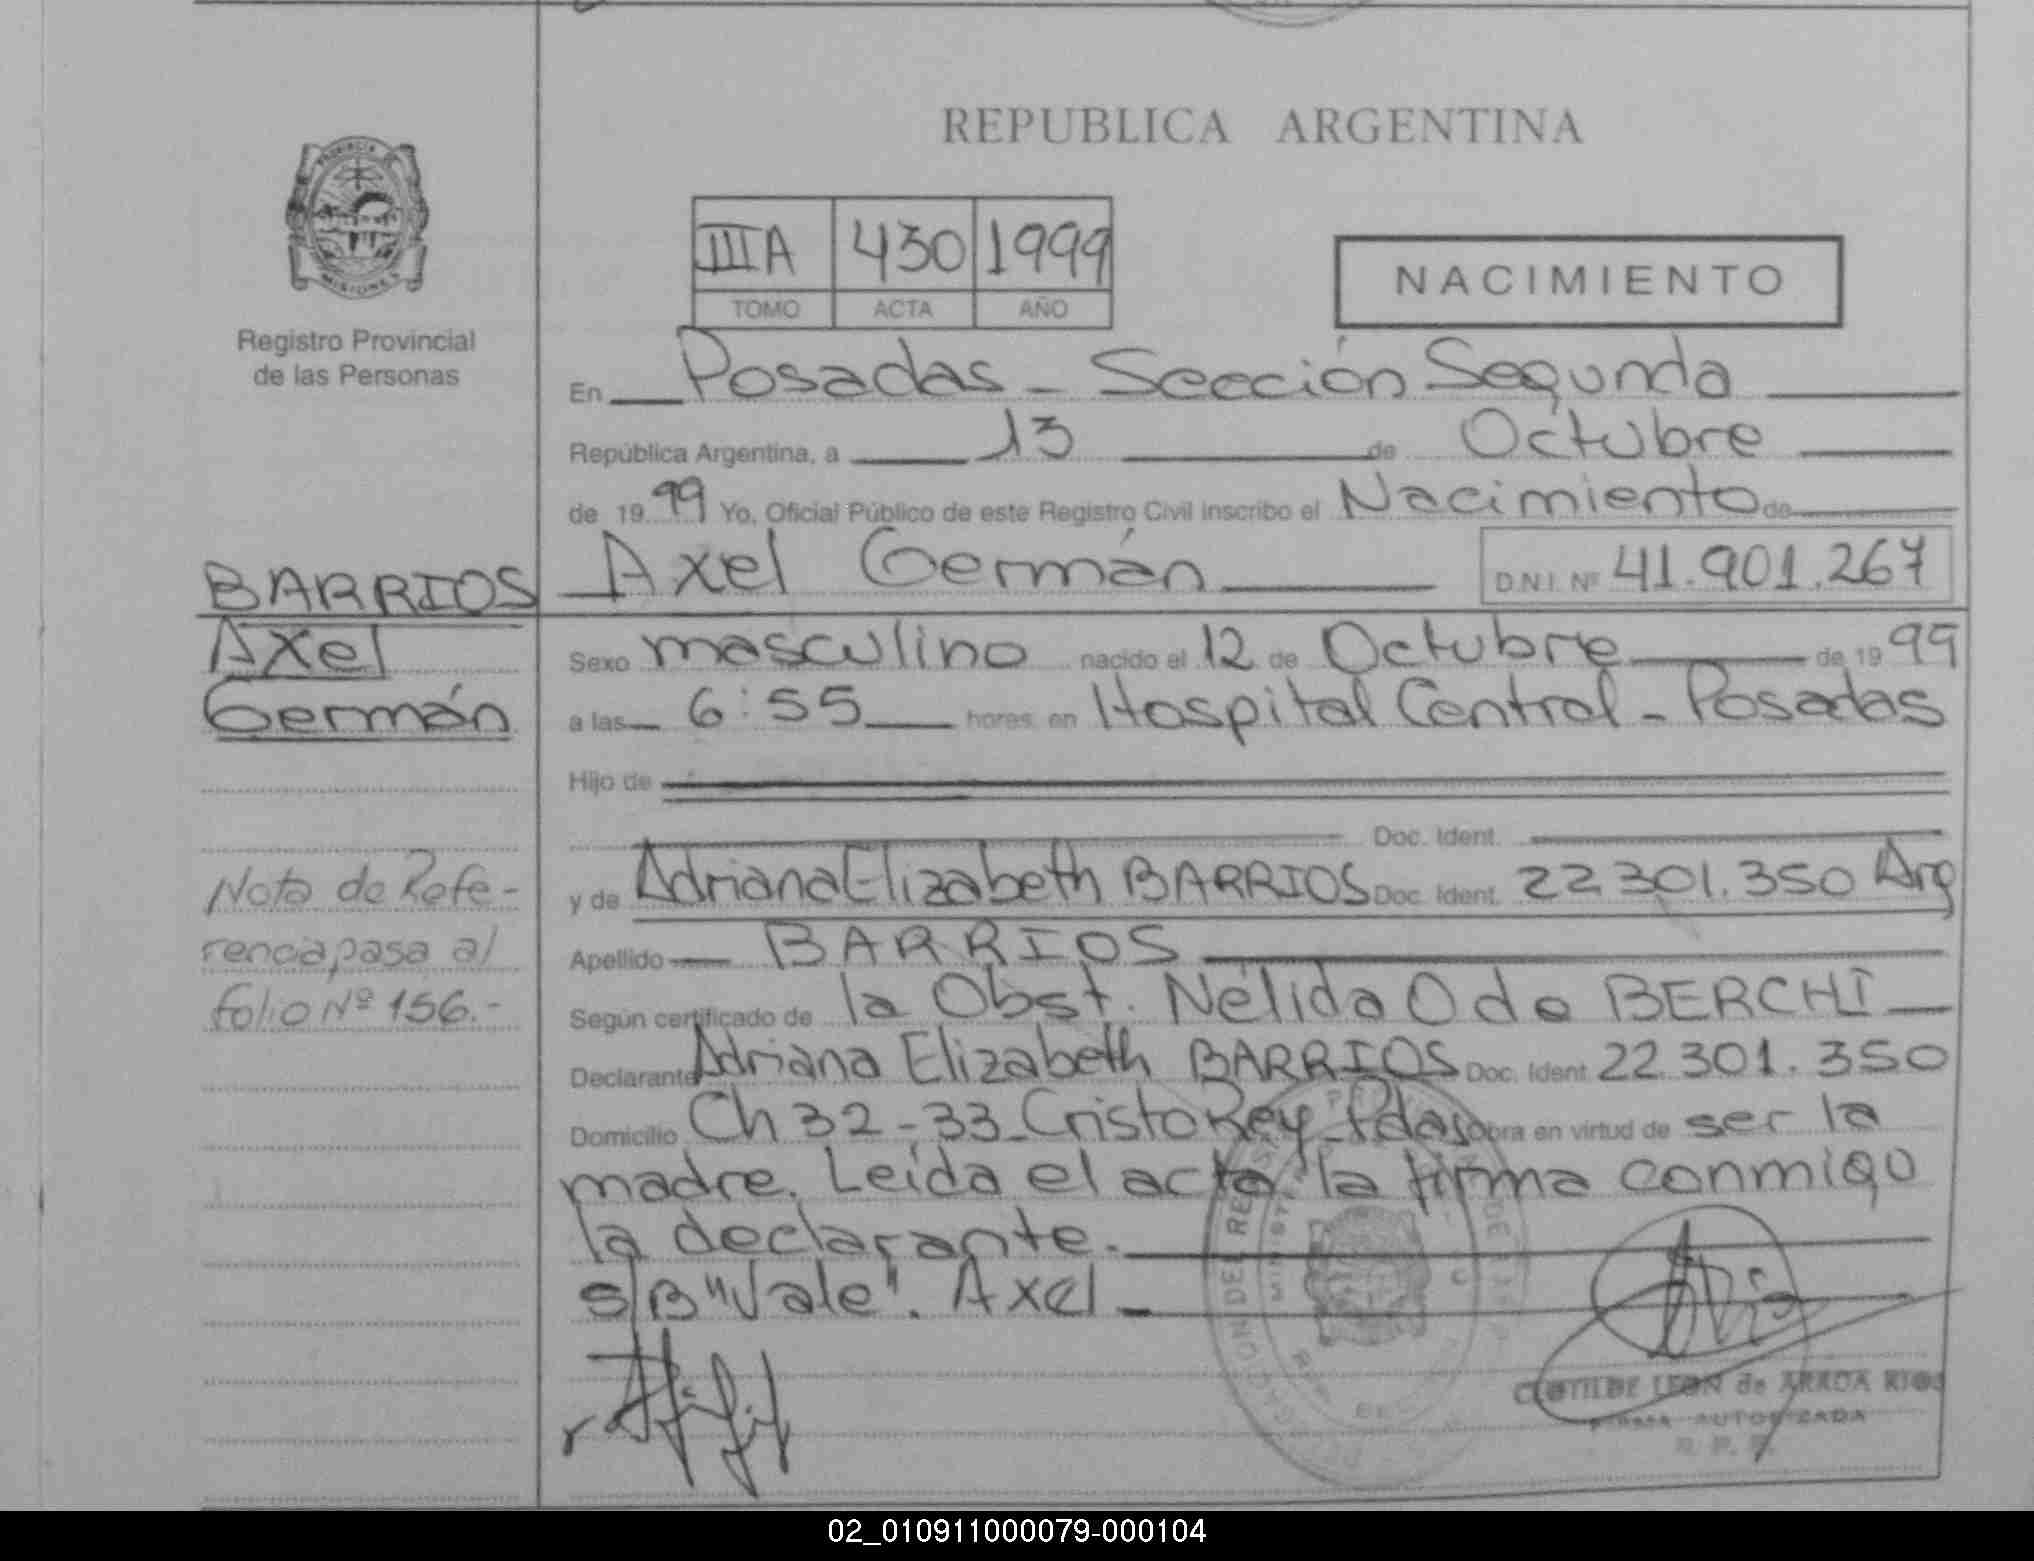 REPUBLICA ARGENTINA
PROVINCIA DE
MISIONES
Registro Provincial
de las Personas
IIIA 430 1999
TOMO ACTA AÑO
NACIMIENTO
En Posadas - Sección Segunda
República Argentina, a 13 de Octubre
de 1999 Yo, Oficial Público de este Registro Civil inscribo el Nacimiento de
BARRIOS Axel Germán D.N.I. Nº 41.901.267
Axel
Germán
Sexo masculino nacido el 12 de Octubre de 1999
a las 6:55 horas en Hospital Central - Posadas
Hijo de
Doc. Ident.
y de Adriana Elizabeth BARRIOS Doc. Ident. 22.301.350 Arg
Nota de Refe-
rencia pasa al
folio Nº 156.-
Apellido BARRIOS
Según certificado de la Obst. Nélida O de BERCHI
Declarante Adriana Elizabeth BARRIOS Doc. Ident. 22.301.350
Domicilio Ch 32-33 Cristo Rey Pdas obra en virtud de ser la
madre. Leída el acta la firma conmigo
la declarante.
s/B "Vale". Axel
CLOTILDE LEON de ARRUA RIOS
FIRMA AUTORIZADA
R. P. P.
02_010911000079-000104